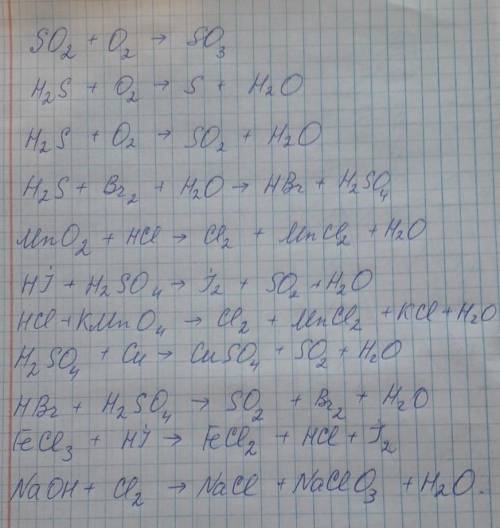 SO₂ + O₂ → SO₃
H₂S + O₂ → S + H₂O
H₂S + O₂ → SO₂ + H₂O
H₂S + Br₂ + H₂O → HBr + H₂SO₄
MnO₂ + HCl → Cl₂ + MnCl₂ + H₂O
HJ + H₂SO₄ → J₂ + SO₂ + H₂O
HCl + KMnO₄ → Cl₂ + MnCl₂ + KCl + H₂O
H₂SO₄ + Cu → CuSO₄ + SO₂ + H₂O
HBr + H₂SO₄ → SO₂ + Br₂ + H₂O
FeCl₃ + HJ → FeCl₂ + HCl + J₂
NaOH + Cl₂ → NaCl + NaClO₃ + H₂O.